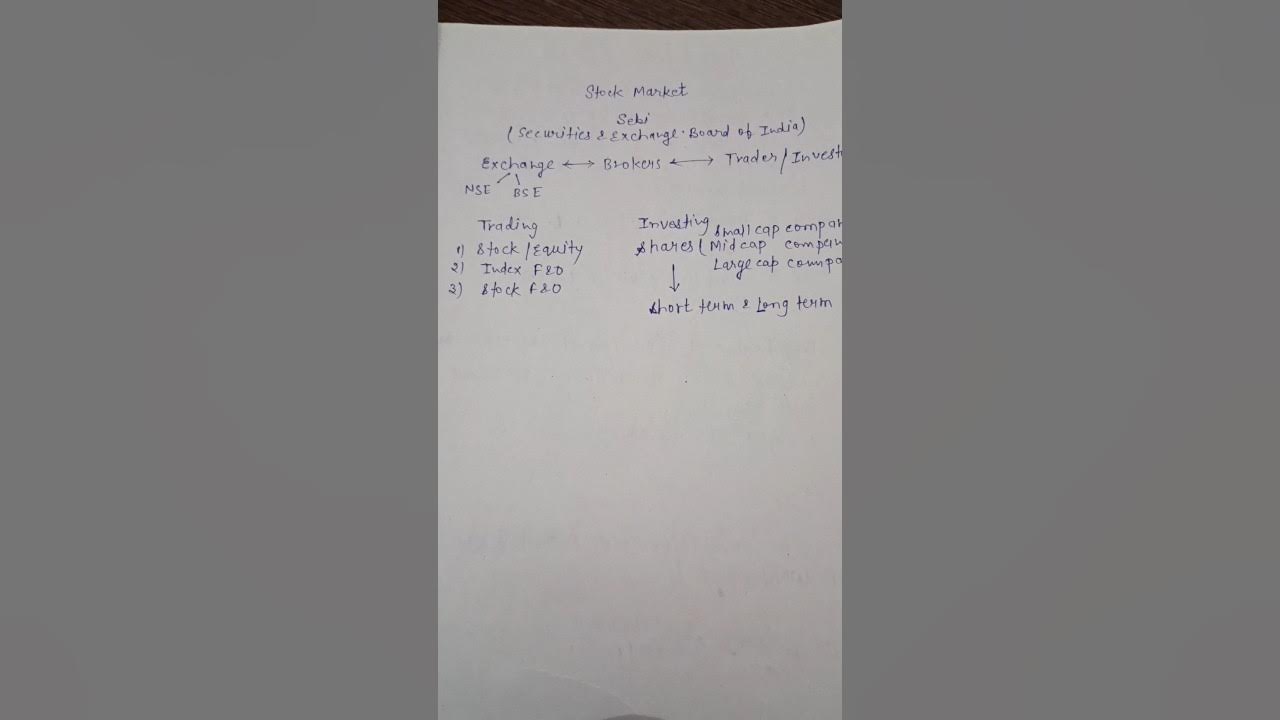 Stock Market
Sebi
(Securities & Exchange Board of India)
Exchange ↔ Brokers ↔ Trader / Invest
NSE BSE
Trading
1) Stock / Equity
2) Index F&O
3) Stock F&O
Investing
Shares ( Small cap compan
Mid cap compan
Large cap compa
↓
Short term & Long term